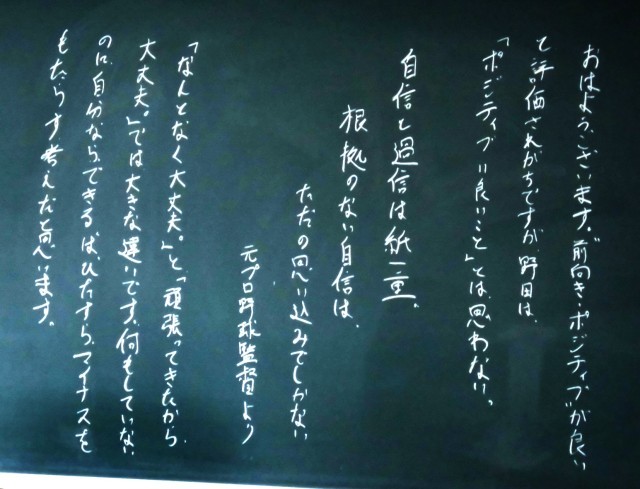 おはようございます。"前向き・ポジティブ"が良い
と評価されがちですが、野田は、
「ポジティブ=良いこと」とは、思わない。
自信と過信は紙一重。
根拠のない自信は、
ただの思い込みでしかない
元プロ野球監督より
「なんとなく大丈夫。」と「頑張ってきたから、
大丈夫。」では大きな違いです。何もしていない
のに、自分ならできる、は、ひたすらマイナスを
もたらす考えだと思います。